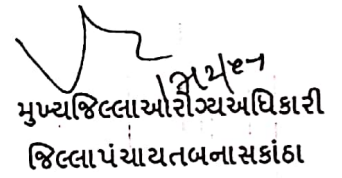 મુખ્યજિલ્લાઓરોગ્યઅધિકારી
જિલ્લાપંચાયતબનાસકાંઠા